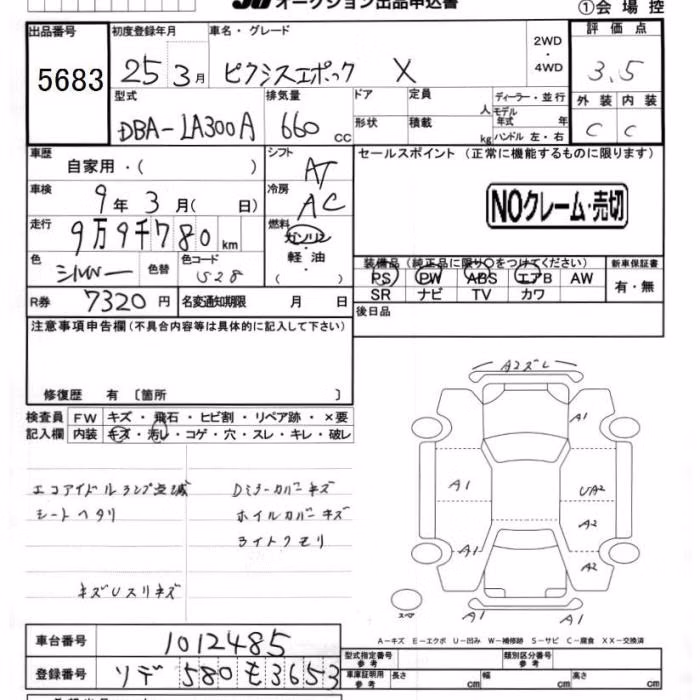 オークション出品申込書
①会場控
出品番号 5683
初度登録年月 25 3月
車名・グレード ピクシスエポック X
2WD・4WD
評価点 3.5
外装 C 内装 C
型式 DBA-LA300A
排気量 660 cc
ドア 形状
定員 人 積載 kg
ディーラー・並行
モデル年式 年
ハンドル 左・右
車歴 自家用・( )
シフト AT
セールスポイント (正常に機能するものに限ります)
車検 9年3月( 日)
冷房 AC
NOクレーム・売切
走行 9万9千780km
燃料 ガソリン 軽油 ( )
色 シルバー 色替 色コード S28
装備品(純正品に限り○をつけてください)
PS PW ABS エアB AW
SR ナビ TV カワ
新車保証書 有・無
R券 7320円 名変通知期限 月 日
後日品
注意事項申告欄(不具合内容等は具体的に記入して下さい)
修復歴 有 〔箇所 〕
検査員記入欄
FW キズ・飛石・ヒビ割・リペア跡・×要
内装 キズ・汚レ・コゲ・穴・スレ・キレ・破レ
エコアイドルランプ点滅 Dミラーカバーキズ
シートヘタリ ホイルカバーキズ
ライトクモリ
キズUスリキズ
A2ズレ
A1
A1 UA2
A2
A1 A2
スペア A1 A1
A-キズ E-エクボ U-凹み W-補修跡 S-サビ C-腐食 XX-交換済
車台番号 1012485
型式指定番号 参考 類別区分番号 参考
登録番号 ソデ 580 も 3653
車庫証明用 参考 長さ cm 幅 cm 高さ cm